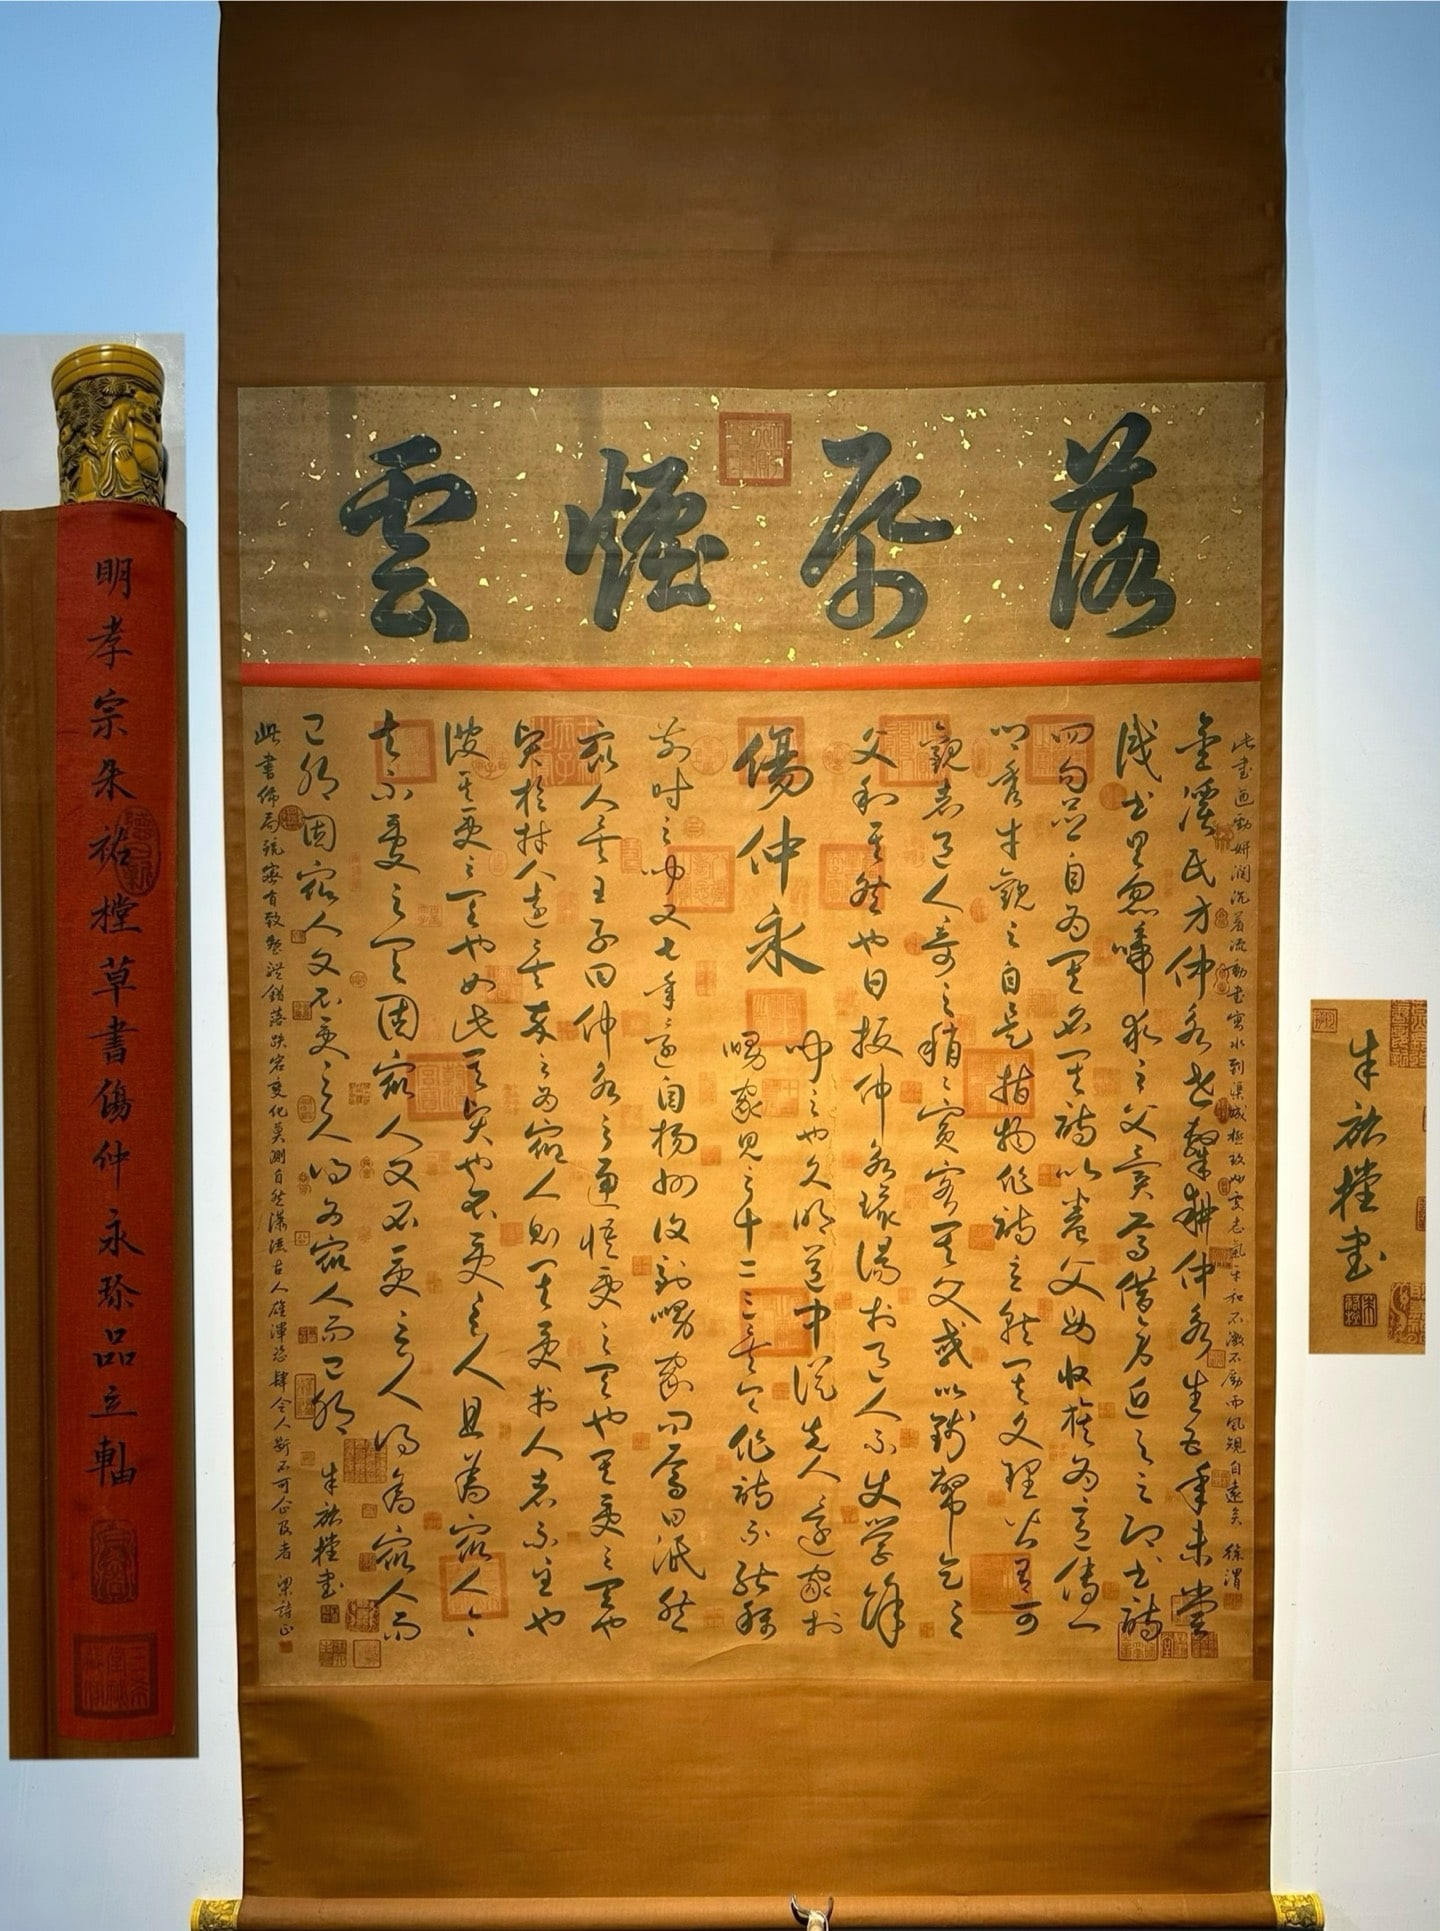 落帋煙雲
此書遒勁妍潤沉着流動書寫水到渠成極致志氣平和不激不厲而風規自遠矣 徐渭
金溪民方仲永世隸耕仲永生五年未嘗
識書具忽啼求之父異焉借旁近與之即書詩
四句並自為其名其詩以養父母收族為意傳一
鄉秀才觀之自是指物作詩立就其文理皆有可
觀者邑人奇之稍稍賓客其父或以錢幣乞之
父利其然也日扳仲永環謁於邑人不使學余
聞之也久明道中從先人還家於
傷仲永
舅家見之十二三矣令作詩不能稱
前時之聞又七年還自揚州復到舅家問焉曰泯然
衆人矣王子曰仲永之通悟受之天也其受之天也
賢於材人遠矣卒之為衆人則其受於人者不至也
彼其受之天也如此其賢也不受之人且為衆人今
夫不受之天固衆人又不受之人得為衆人而
已耶固衆人又不受之人得為衆人而已耶
朱祐樘書
此書佈局疏密有致錯落跌宕變化莫測自然瀟洒古人雄渾恣肆令人斯不可企及者 梁詩正
明孝宗朱祐樘草書傷仲永珍品立軸
朱祐樘書